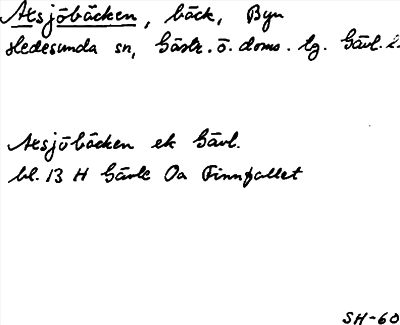 Aksjöbäcken, bäck, Byn
Hedesunda sn, Gästr. ö. doms. lg. Gävl. l.
Aksjöbäcken ek Gävl.
bl. 13 H Gävle Oa Finnfallet
SH-60